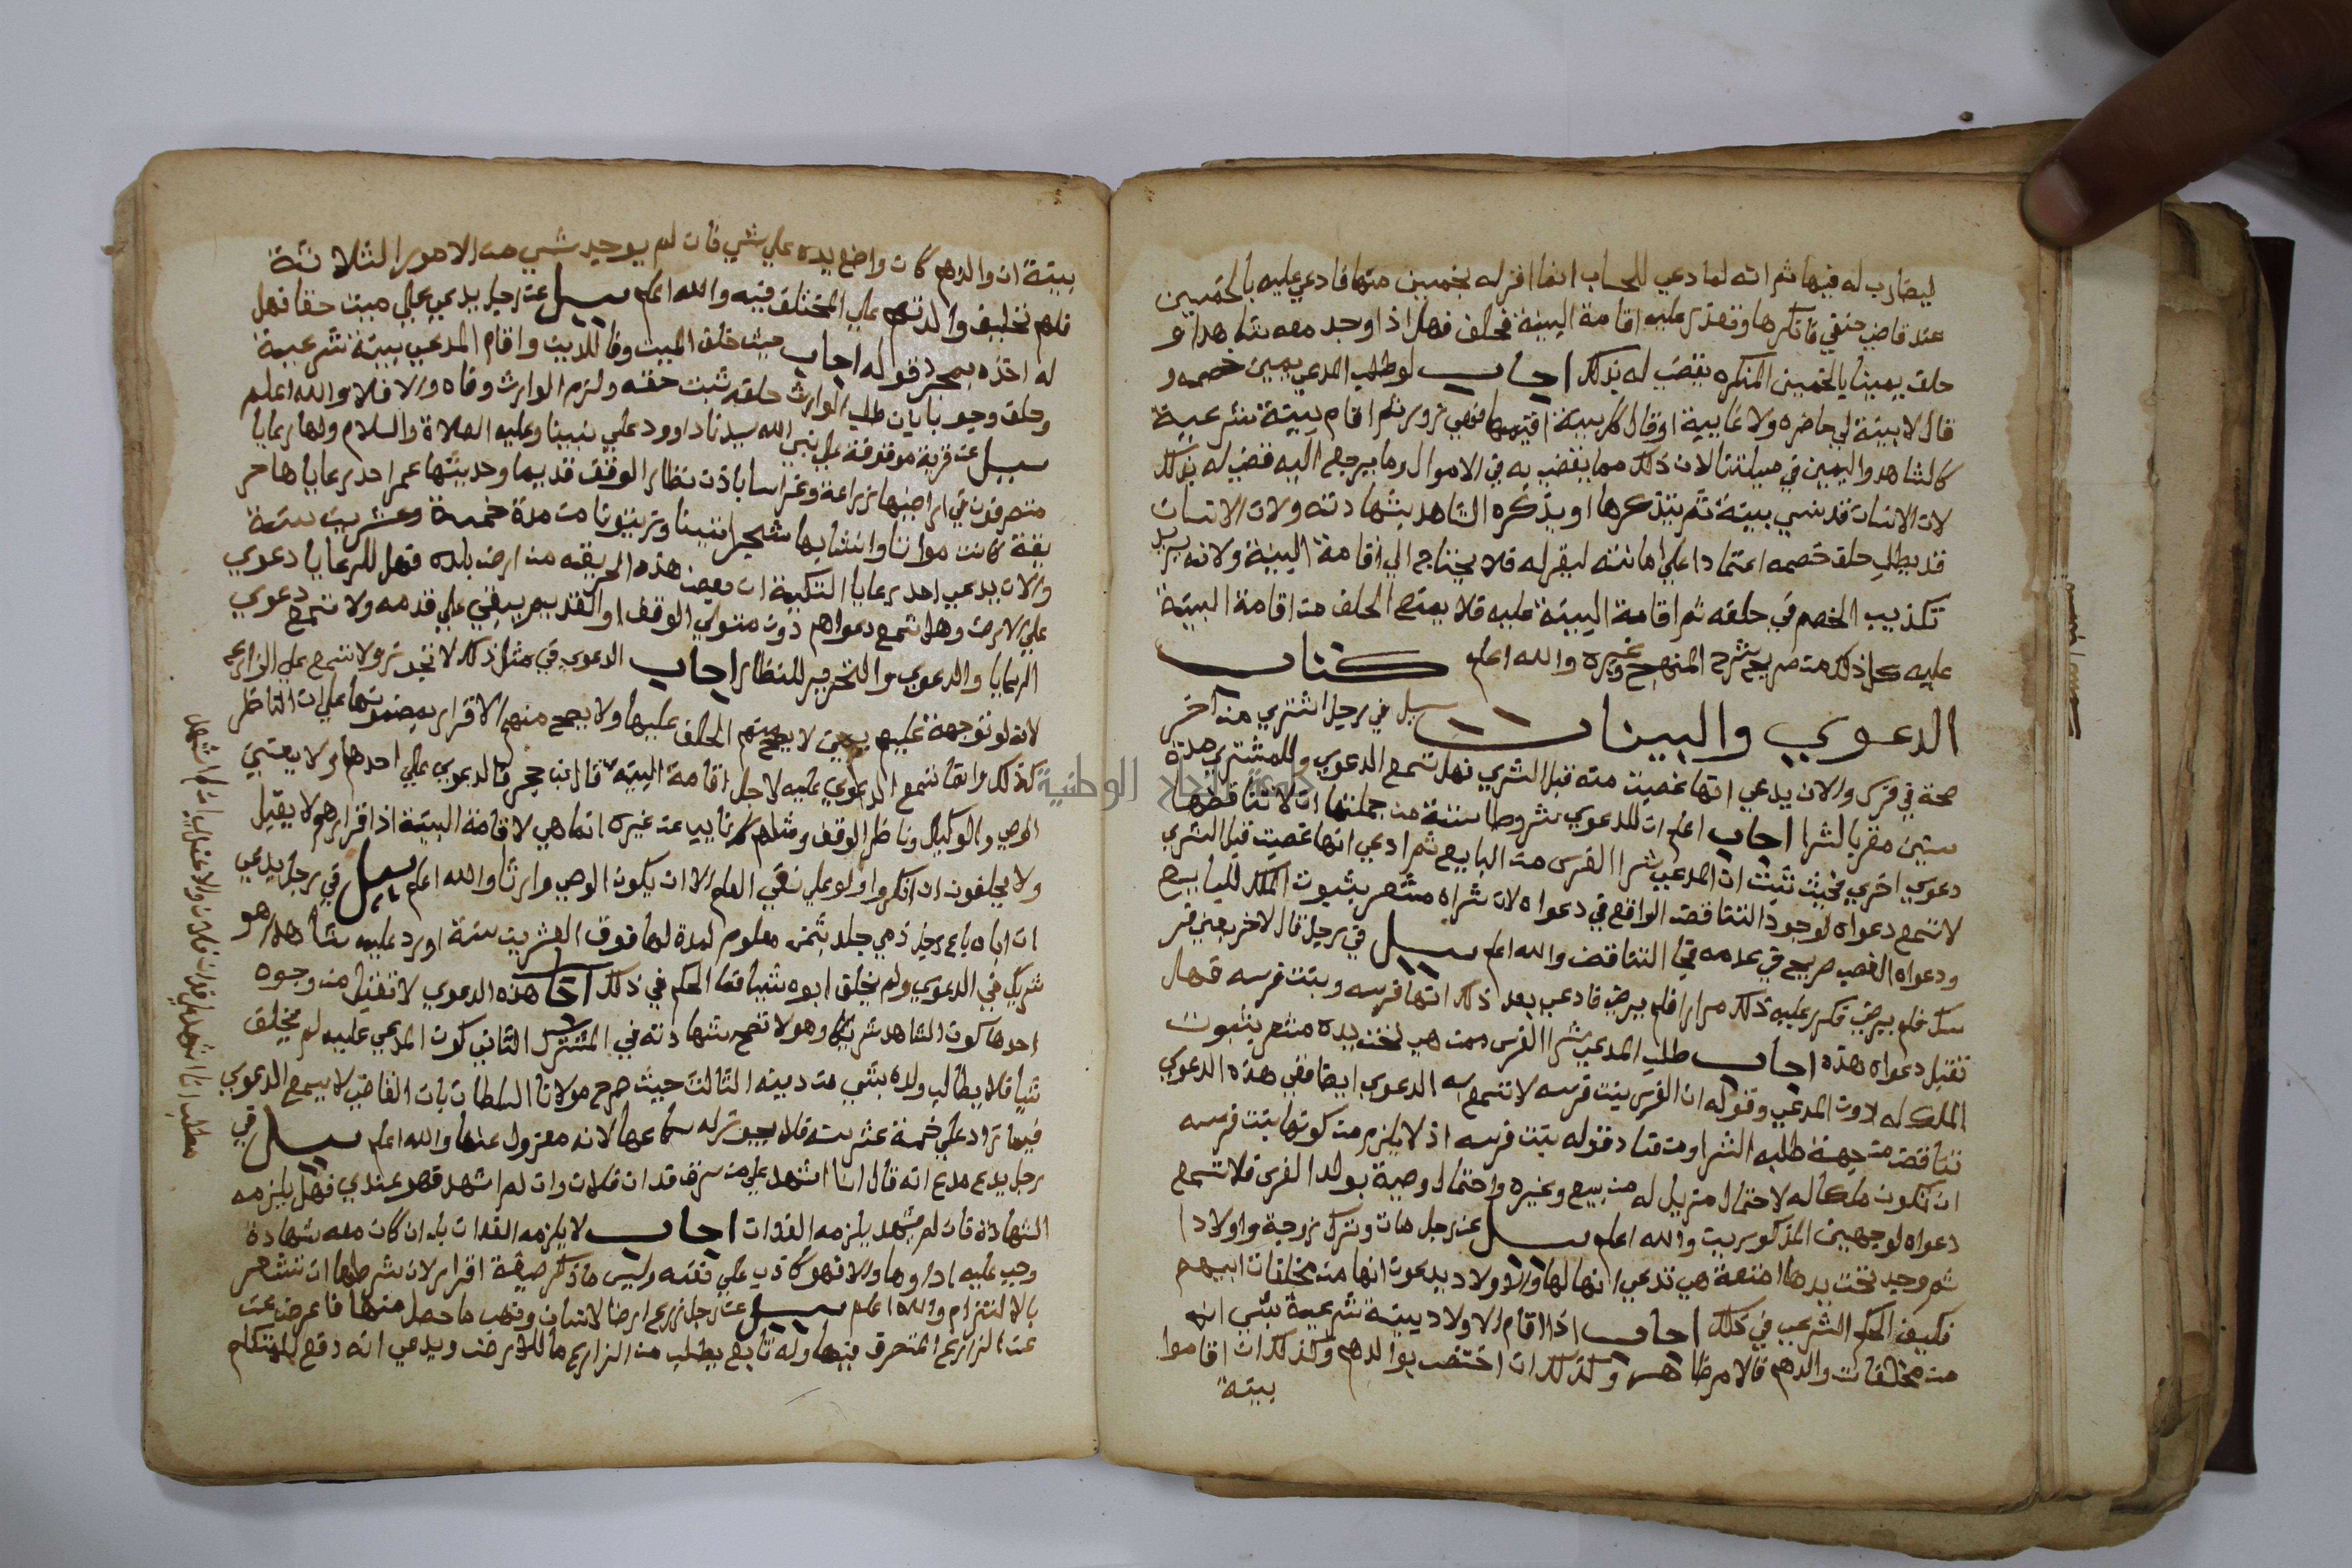 ليضارب له فيها ثم انه لما دعي للحساب انما اقر له بخمسين منها فادعي عليه بالخمسين
عند قاضي حنفي فانكرها وتعذر عليه اقامة البينة فحلف فهل اذا وجد معه شاهدا و
حلف يمينا بالخمسين المنكره يقضى له بذلك اجاب لو طلب المدعي يمين خصمه و
قال لا بينة لي حاضره ولا غايبة او قال كل بينة اقيمها فهي زور ثم اقام بينة شرعية
كالشاهد واليمين في مسيلتنا لان ذلك مما يقضى به في الاموال وما يرجع اليه قضي له بذلك
لان الانسان قد ينسي بينة ثم يتذكرها او يذكره الشاهد بشهادته ولان الانسان
قد يطلب حلف خصمه اعتمادا علي امانته ليقر له فلا يحتاج الي اقامة البينة ولانه يريد
تكذيب الخصم في حلفه ثم اقامة البينة عليه فلا يمنع الحلف من اقامة البينة
عليه كل ذلك من صريح شرح المنهج وغيره والله اعلم كتاب
الدعوي والبينات سيل في رجل اشتري من اخر
حصة في فرس والان يدعي انها غصبت منه قبل الشري فهل تسمع الدعوي وللمشتري مدة
سنين مقر بالشرا اجاب اعلم ان للدعوي شروطا ستة من جملتها ان لا تناقضها
دعوي اخري فحيث ثبت ان المدعي شرا الفرس من البايع ثم ادعي انها غصبت قبل الشري
لا تسمع دعواه لوجود التناقض الواقع في دعواه لان شراه مشعر بثبوت الملك للبايع
ودعواه الغصب صريح في عدمه في التناقض والله اعلم سيل في رجل قال لاخر بعني فر
سك فلم يرض فكرر عليه ذلك مرارا فلم يرض فادعي بعد ذلك انها فرسه وبنت فرسه فهل
تقبل دعواه هذه اجاب طلب المدعي شرا الفرس ممن هي تحت يده مشعر بثبوت
الملك له دون المدعي وقوله ان الفرس بنت فرسه لا تسمع به الدعوي ايضا ففي هذه الدعوي
تناقض من جهة طلبه الشرا ومن فساد قوله بنت فرسه اذ لا يلزم من كونها بنت فرسه
ان تكون ملكا له لاحتمال مزيل له من بيع وغيره واحتمال وصية بولد الفرس فلا تسمع
دعواه لوجهين المذكورين والله اعلم سيل عن رجل مات وترك زوجة واولادا
ثم وجد تحت يدها امتعة هي تدعي انها لها والاولاد يدعون انها من مخلفات ابيهم
فكيف الحكم الشرعي في ذلك اجاب اذا اقام الاولاد بينة شرعية بشي انه
من مخلفات والدهم فالامر ظاهر وكذلك ان اختص بوالدهم وكذلك ان اقاموا
بينة
بينة ان والدهم كان واضع يده علي شي فان لم يوجد شي من الامور الثلاثة
فلهم تحليف والدتهم علي المختلف فيه والله اعلم سيل عن رجل يدعي علي ميت حقا فهل
له اخذه بمجرد قوله اجاب حيث خلف الميت وفا للدين واقام المدعي بينة شرعية
وحلف وجوبا بان طلب الوارث حلفه ثبت حقه ولزم الوارث وفاه والا فلا والله اعلم
سيل عن قرية موقوفة علي نبي الله سيدنا داوود علي نبينا وعليه الصلاة والسلام ولها رعايا
متصرفون في اراضيها زراعة وغراسا باذن نظار الوقف قديما وحديثا عمر احد رعاياها حر
يقة كانت مواتا وانشا بها شجرا تينا وزيتونا من مدة خمسة وعشرين سنة
والان يدعي احد رعايا التكية ان بعض هذه الحريقة من ارض بلده فهل للرعايا دعوي
علي الارض وهل تسمع دعواهم دون متولي الوقف او القديم يبقي علي قدمه ولا تسمع دعوي
الرعايا والدعوي والتحرير للنظار اجاب الدعوي في مثل ذلك لا تحرر ولا تسمع علي الزارع
لانه لو توجهة عليهم يمين لا يصح منهم الحلف عليها ولا يصح منهم الاقرار بمضمونها علي ان الناظر
كذلك وانما تسمع الدعوي عليه لاجل اقامة البينة قال بن حجر فالدعوي علي احدهم لا يعتبي
الوصي والوكيل وناظر الوقف ومثلهم كل نايب عن غيره انما هي لاقامة البينة اذ اقرارهم لا يقبل
ولا يحلفون ان انكروا ولو علي نفي العلم الا ان يكون الوصي وارثا والله اعلم سيل في رجل يدعي
ان اباه باع رجل ذمي جلد بثمن معلوم لمدة لها فوق العشرين سنة اورد عليه شاهد هو
شريك في الدعوي ولم يخلف ابوه شيا فما الحكم في ذلك اجاب هذه الدعوي لا تقبل من وجوه
احدها كون الشاهد شريكا وهو لا تصح شهادته في المشترك الثاني كون المدعي عليه لم يخلف
شيا فلا يطالب ولده بشي من دينه الثالث حيث صرح مولانا السلطان بان القاضي لا يسمع الدعوي
فيما زاد علي خمسة عشر سنة فلا يجوز له سماعها لانه معزول عنها والله اعلم سيل في
رجل يدع مدع انه قال انا اشهد علي من سرق فدان فلان وان لم اشهد فهو عندي فهل يلزمه
الشهادة فان لم يشهد يلزمه الفدان اجاب لا يلزمه الفدان بل ان كان معه شهادة
وجب عليه اداوها والا فهو كاذب علي نفسه وليس ما ذكر صيغة اقرار لان شرطها ان تشعر
بالالتزام والله اعلم سيل عن رجل زرع ارضا لانسان ونهب ما حصل منها فاعرض عن
عن الزارع المتصرف فيها وله تابع يطلب من الزارع مال الارض ويدعي انه دفع للمتكلم
مطلب انا اشهد علي فدان فلان